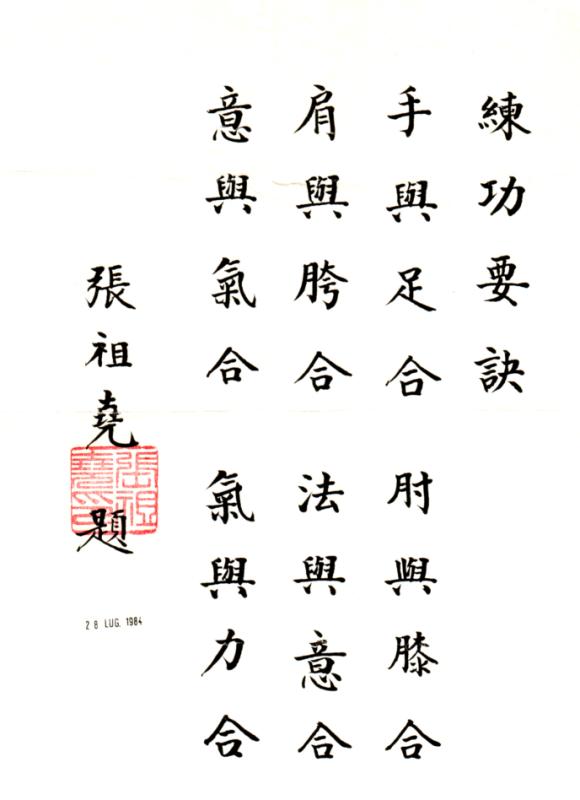 練功要訣
手與足合 肘與膝合
肩與胯合 法與意合
意與氣合 氣與力合
張祖堯題
張祖堯印
28 LUG. 1984